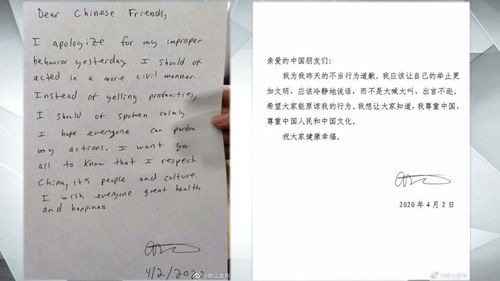 Dear Chinese Friends,
I apologize for my improper
behavior yesterday. I should of
acted in a more civil manner.
Instead of yelling profanities,
I should of spoken calmly
I hope everyone can pardon
my actions. I want you
all to know that I respect
China, it's people and culture.
I wish everyone great health
and happiness.
4/2/202
亲爱的中国朋友们：
我为我昨天的不当行为道歉，我应该让自己的举止更
加文明，应该冷静地说话，而不是大喊大叫、出言不逊。
希望大家能原谅我的行为。我想让大家知道，我尊重中国，
尊重中国人民和中国文化。
祝大家健康幸福。
2020 年 4 月 2 日